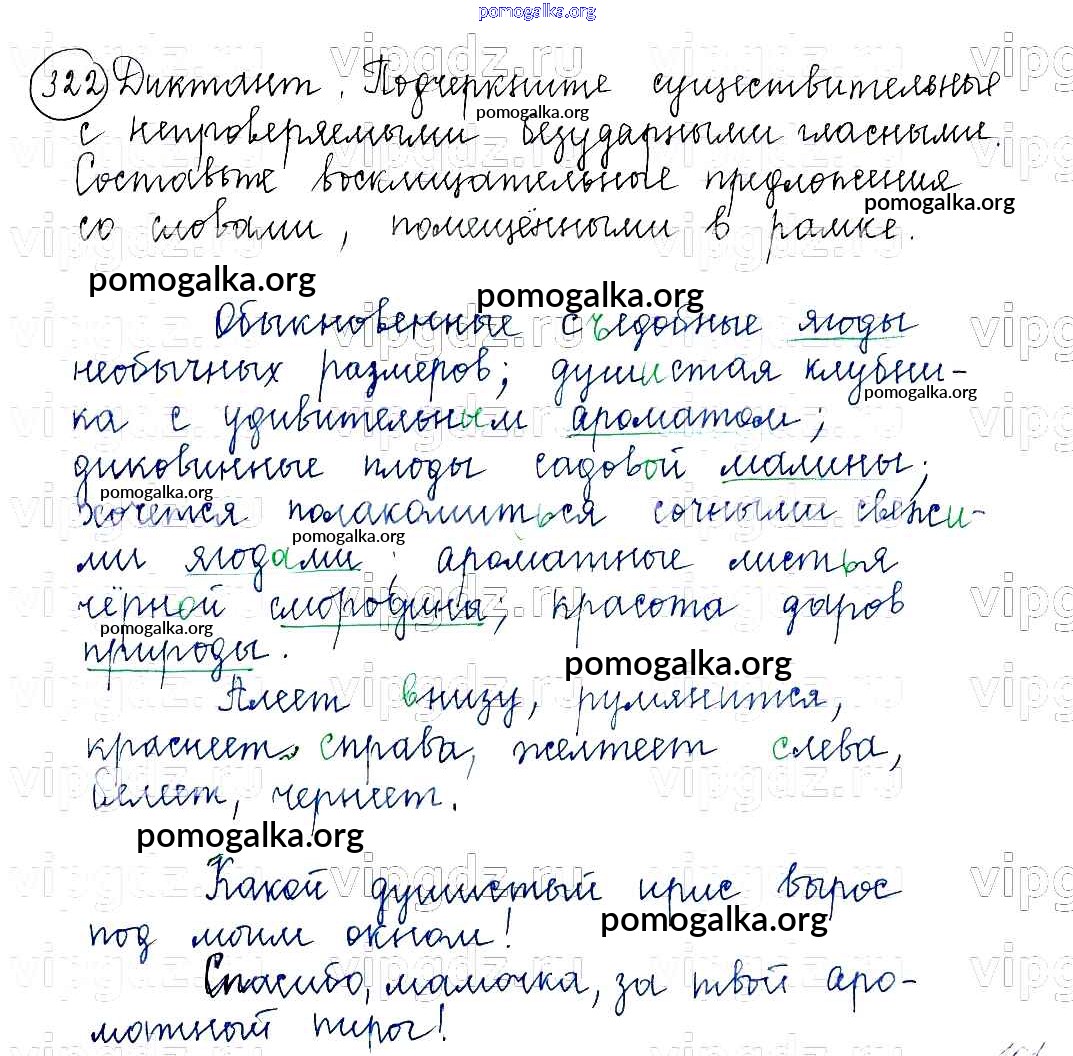 pomogalka.org
322 Диктант. Подчеркните существительные
pomogalka.org
с непроверяемыми безударными гласными.
pomogalka.org
Составьте восклицательные предложения
pomogalka.org
со словами, помещёнными в рамке.
pomogalka.org pomogalka.org
Обыкновенные съедобные ягоды
необычных размеров; душистая клубни-
pomogalka.org
ка с удивительным ароматом;
диковинные плоды садовой малины;
pomogalka.org
хочется полакомиться сочными свежи-
pomogalka.org
ми ягодами; ароматные листья
чёрной смородины; красота даров
pomogalka.org
природы.
pomogalka.org
Алеет внизу, румянится,
краснеет справа, желтеет слева,
белеет, чернеет.
pomogalka.org
Какой душистый ирис вырос
pomogalka.org
под моим окном!
Спасибо, мамочка, за твой аро-
матный пирог!